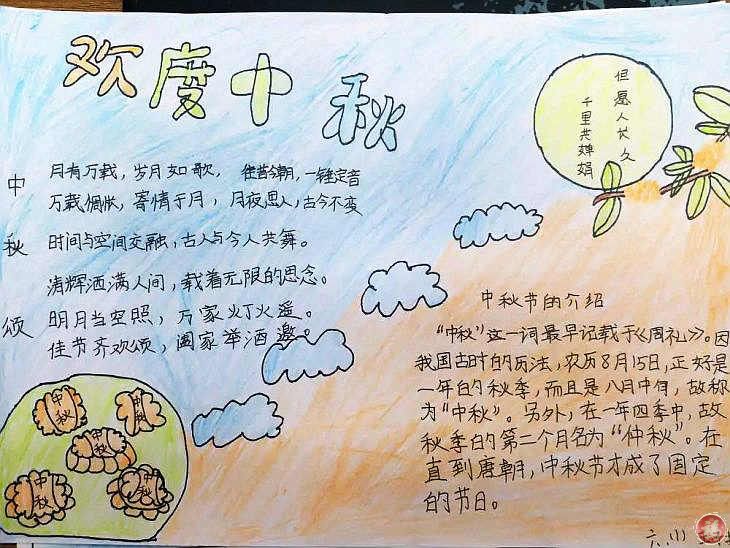 欢度中秋
但愿人长久
千里共婵娟
中秋颂
月有万载，岁月如歌，往昔今朝，一锤定音
万载惆怅，寄情于月，月夜思人，古今不变
时间与空间交融，古人与今人共舞。
清辉洒满人间，载着无限的思念。
明月当空照，万家灯火遥。
佳节齐欢颂，阖家举酒邀。
中秋节的介绍
"中秋"这一词最早记载于《周礼》。因
我国古时的历法，农历8月15日，正好是
一年的秋季，而且是八月中旬，故称
为"中秋"。另外，在一年四季中，故
秋季的第二个月名为"仲秋"。在
直到唐朝，中秋节才成了固定
的节日。
中秋
中秋
中秋
中秋
中秋